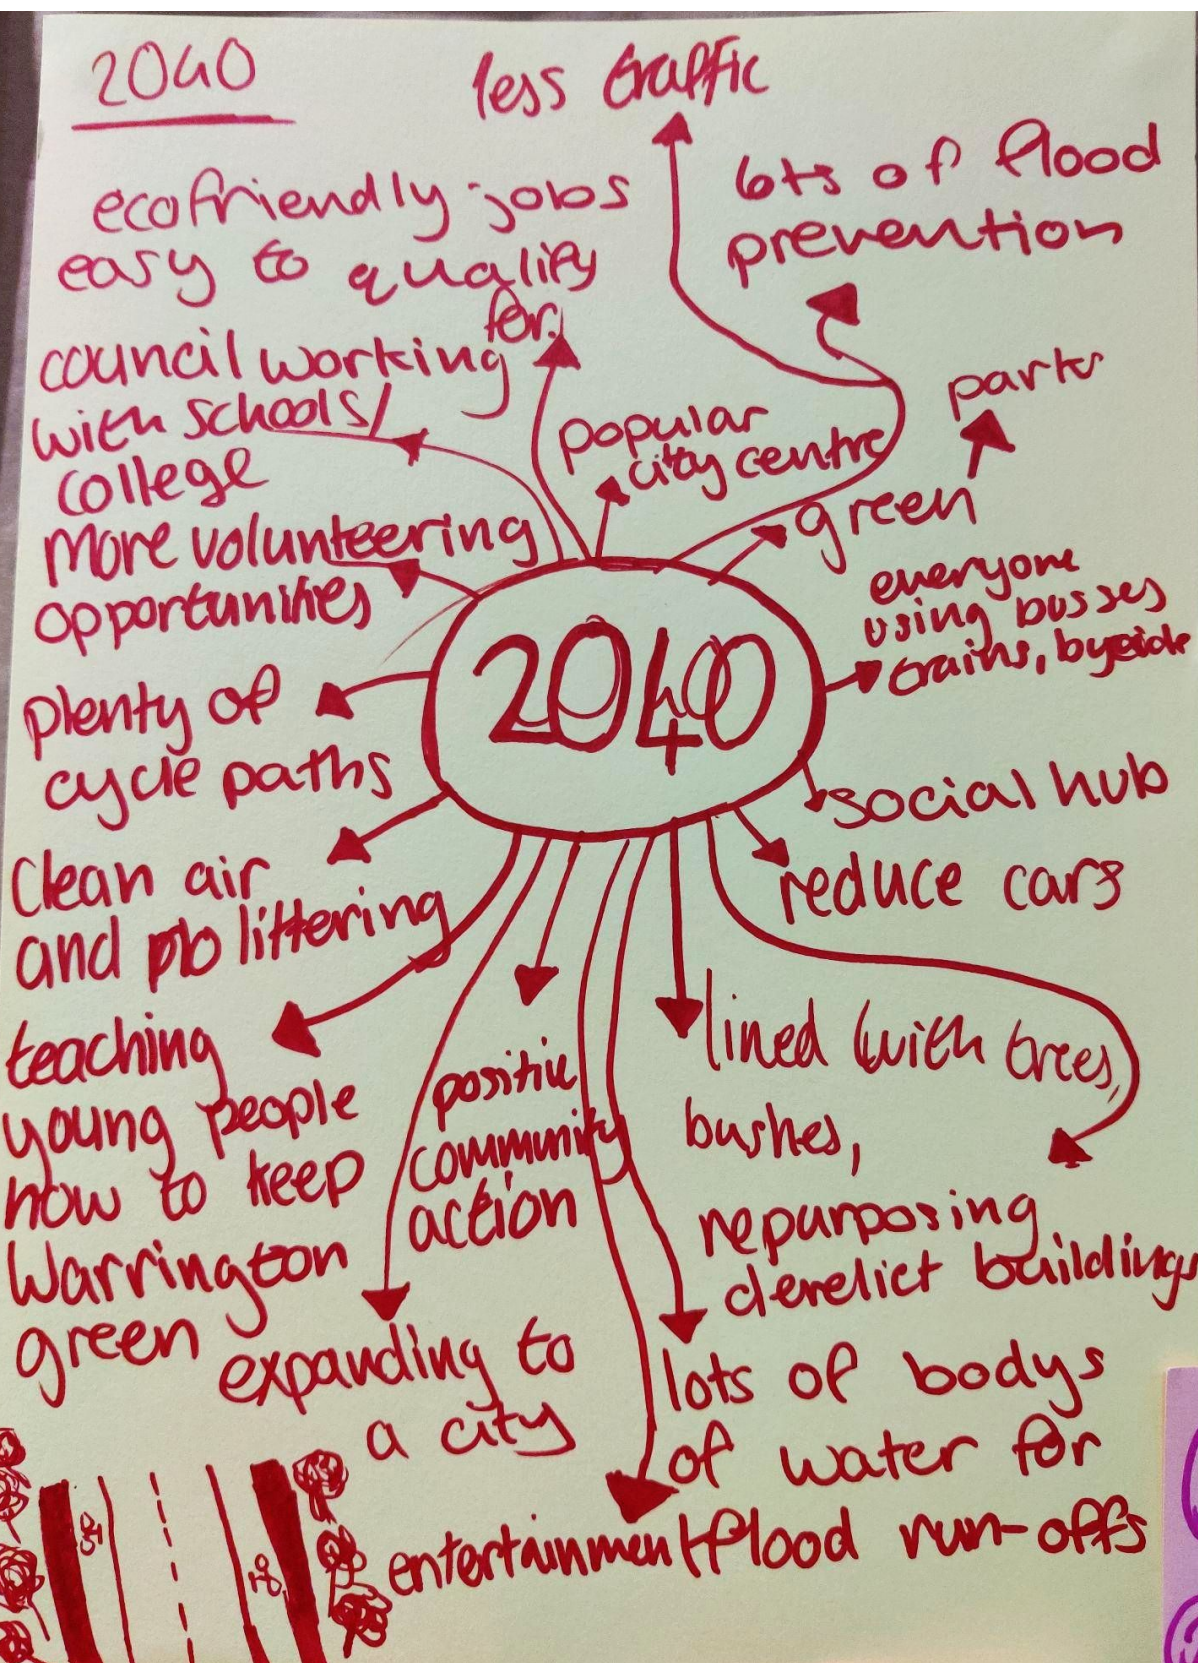 2040
less traffic
lots of flood
prevention
ecofriendly jobs
easy to qualify
for.
council working
with schools/
college
popular
city centre
parks
green
more volunteering
opportunities
everyone
using busses
trains,
2040
plenty of
cycle paths
social hub
reduce cars
clean air
and no littering
teaching
young people
how to keep
Warrington
green
positive
community
action
lined with trees,
bushes,
repurposing
derelict buildings
expanding to
a city
lots of bodys
of water for
flood run-offs
entertainment